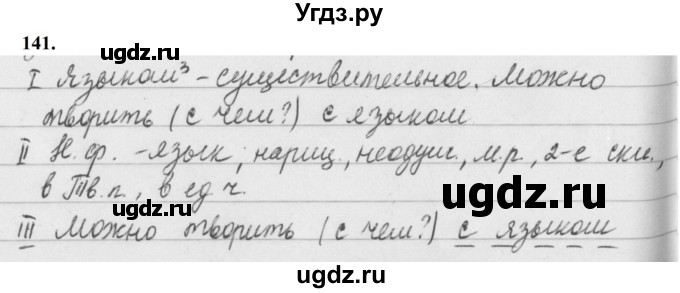 Угдз.ру
141.
ugdz.ru ugdz.ru
I Языком³ - существительное. Можно
творить (с чем?) с языком
ugdz.ru
II Н.ф. - язык, нариц., неодуш., м.р., 2-е скл.,
ugdz.ru
в Тв.п., в ед.ч.
ugdz.ru
III Можно творить (с чем?) с языком
ugdz.ru